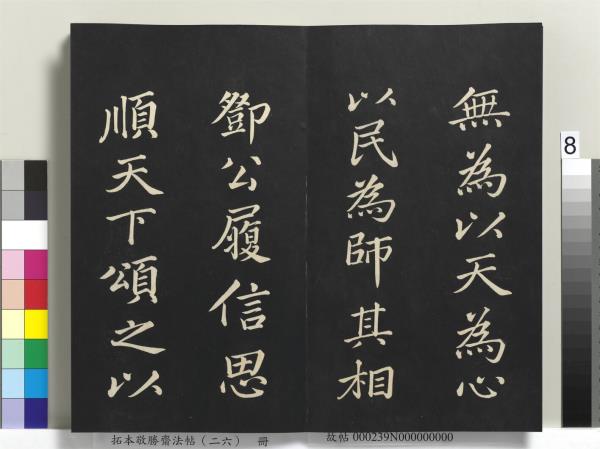 無為以天為心
以民為師其相
鄧公履信思
順天下頌之以
8
拓本敬勝齋法帖(二六) 冊
故帖 000239N000000000